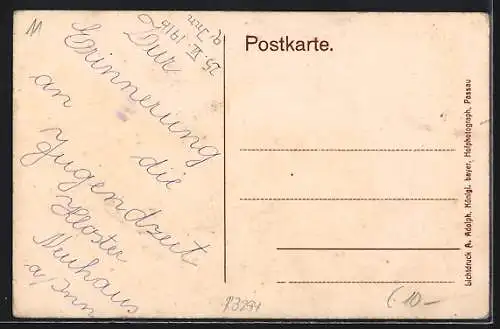 M
Zur
Erinnerung
an die
Jugendzeit
Kloster
Neuhaus
a/Inn
Postkarte.
Lichtdruck A. Adolph, Königl. bayer. Hofphotograph, Passau
10-